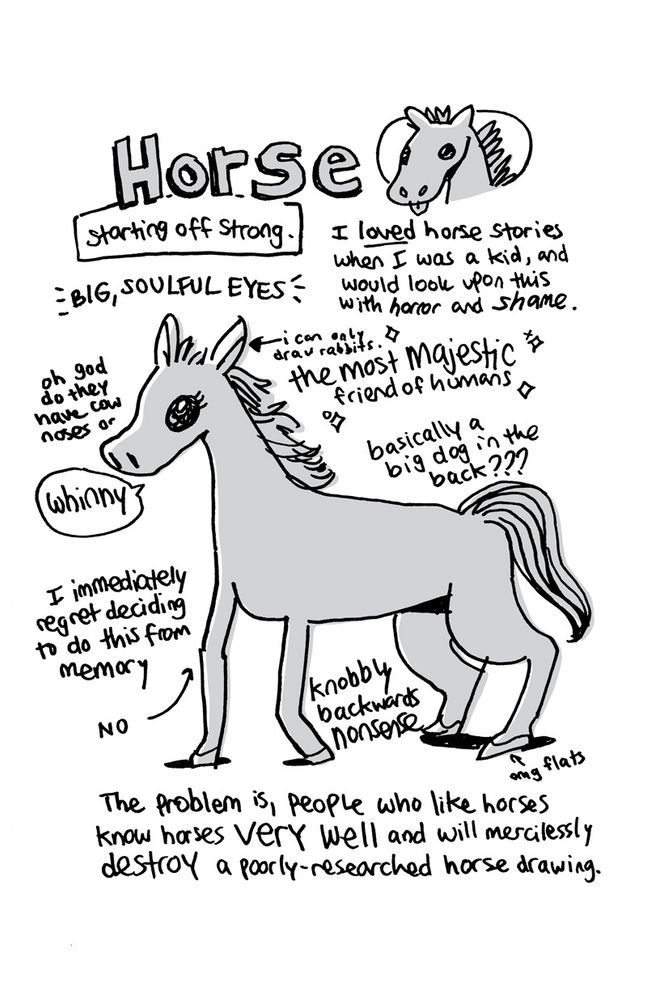 Horse
starting off strong.
I loved horse stories
when I was a kid, and
would look upon this
with horror and shame.
BIG, SOULFUL EYES
i can only
draw rabbits.
the most majestic
friend of humans
oh god
do they
have cow
noses or
basically a
big dog in the
back???
whinny
I immediately
regret deciding
to do this from
memory
NO
knobbly
backwards
nonsense
omg flats
The problem is, people who like horses
know horses VERY well and will mercilessly
destroy a poorly-researched horse drawing.